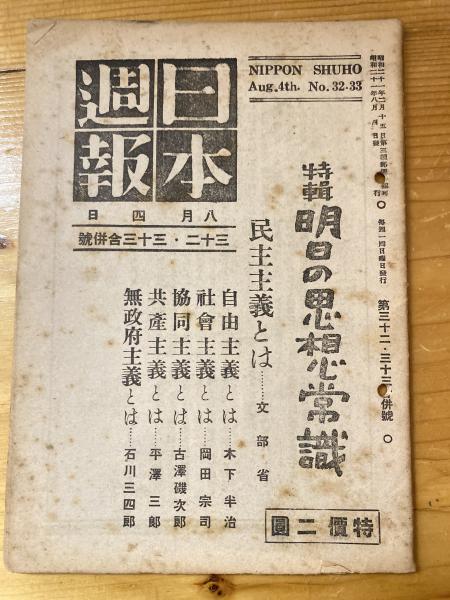 昭和二十一年八月
NIPPON SHUHO
Aug.4th. No.32-33
日本
週報
八月四日
三十二・三十三合併號
特輯
明日の思想常識
民主主義とは……文部省
自由主義とは……木下半治
社會主義とは……岡田宗司
協同主義とは……古澤磯次郎
共產主義とは……平澤三郎
無政府主義とは……石川三四郎
特價二圓
每週一回日曜日發行
第三十二・三十三合併號